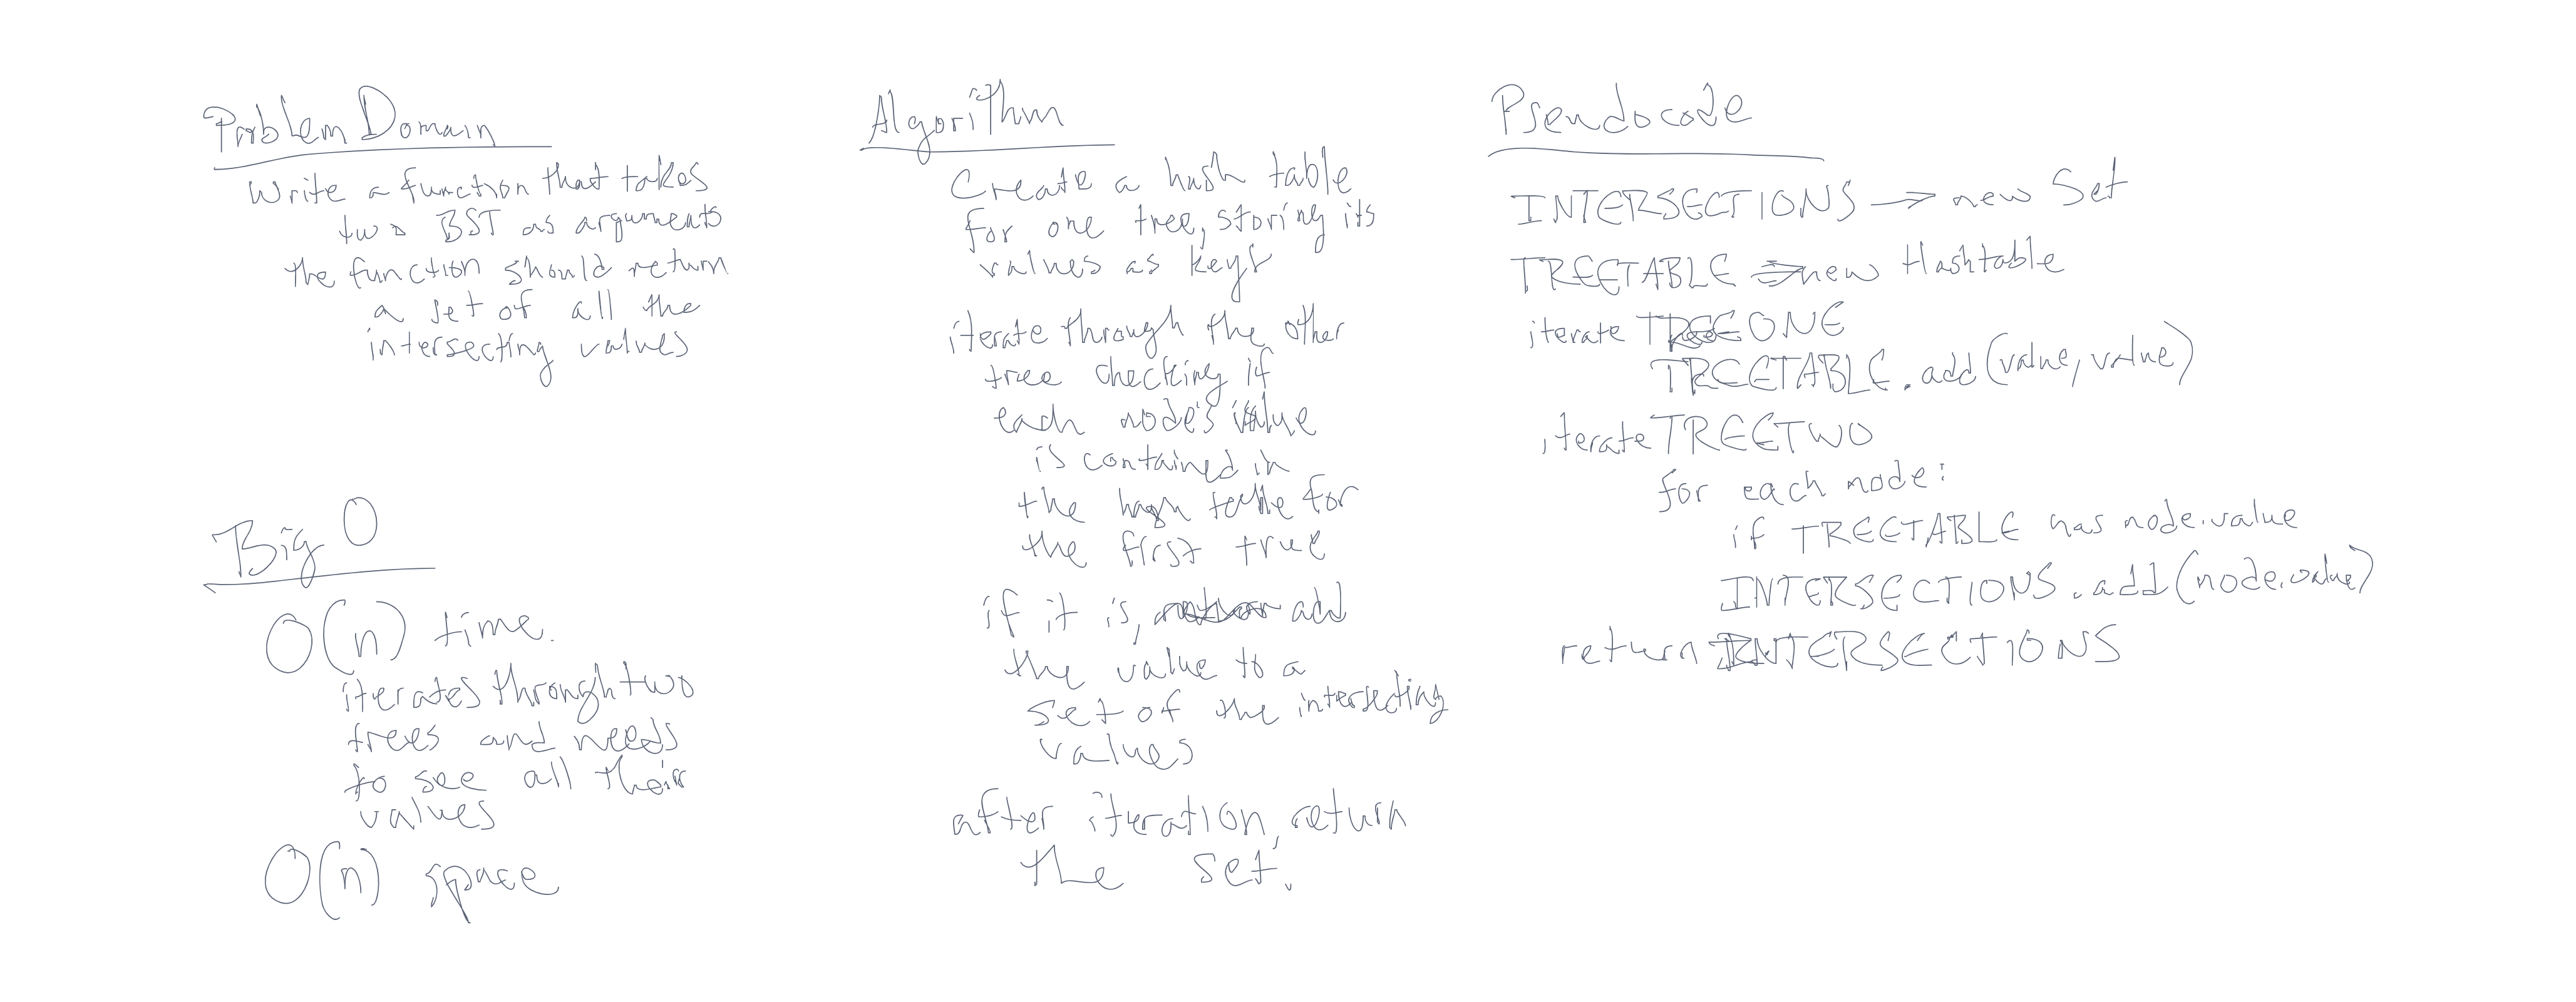 Problem Domain
Write a function that takes
two BST as arguments
the function should return
a set of all the
intersecting values
Big O
O(n) time.
iterates through two
trees and needs
to see all their
values
O(n) space
Algorithm
Create a hash table
for one tree, storing its
values as keys
iterate through the other
tree checking if
each node's value
is contained in
the hash table for
the first tree
if it is, add
the value to a
set of the intersecting
values
after iteration, return
the set.
Pseudocode
INTERSECTIONS → new Set
TREETABLE → new Hashtable
iterate TREEONE
TREETABLE.add(value, value)
iterate TREETWO
for each node:
if TREETABLE has node.value
INTERSECTIONS.add(node.value)
return INTERSECTIONS